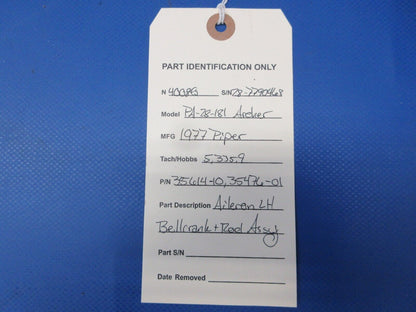 PART IDENTIFICATION ONLY
N 4008G S/N 28-7790468
Model PA-28-181 Archer
MFG 1977 Piper
Tach/Hobbs 5,335.9
P/N 35614-10, 35476-01
Part Description Aileron LH
Bellcrank + Rod Assy
Part S/N
Date Removed